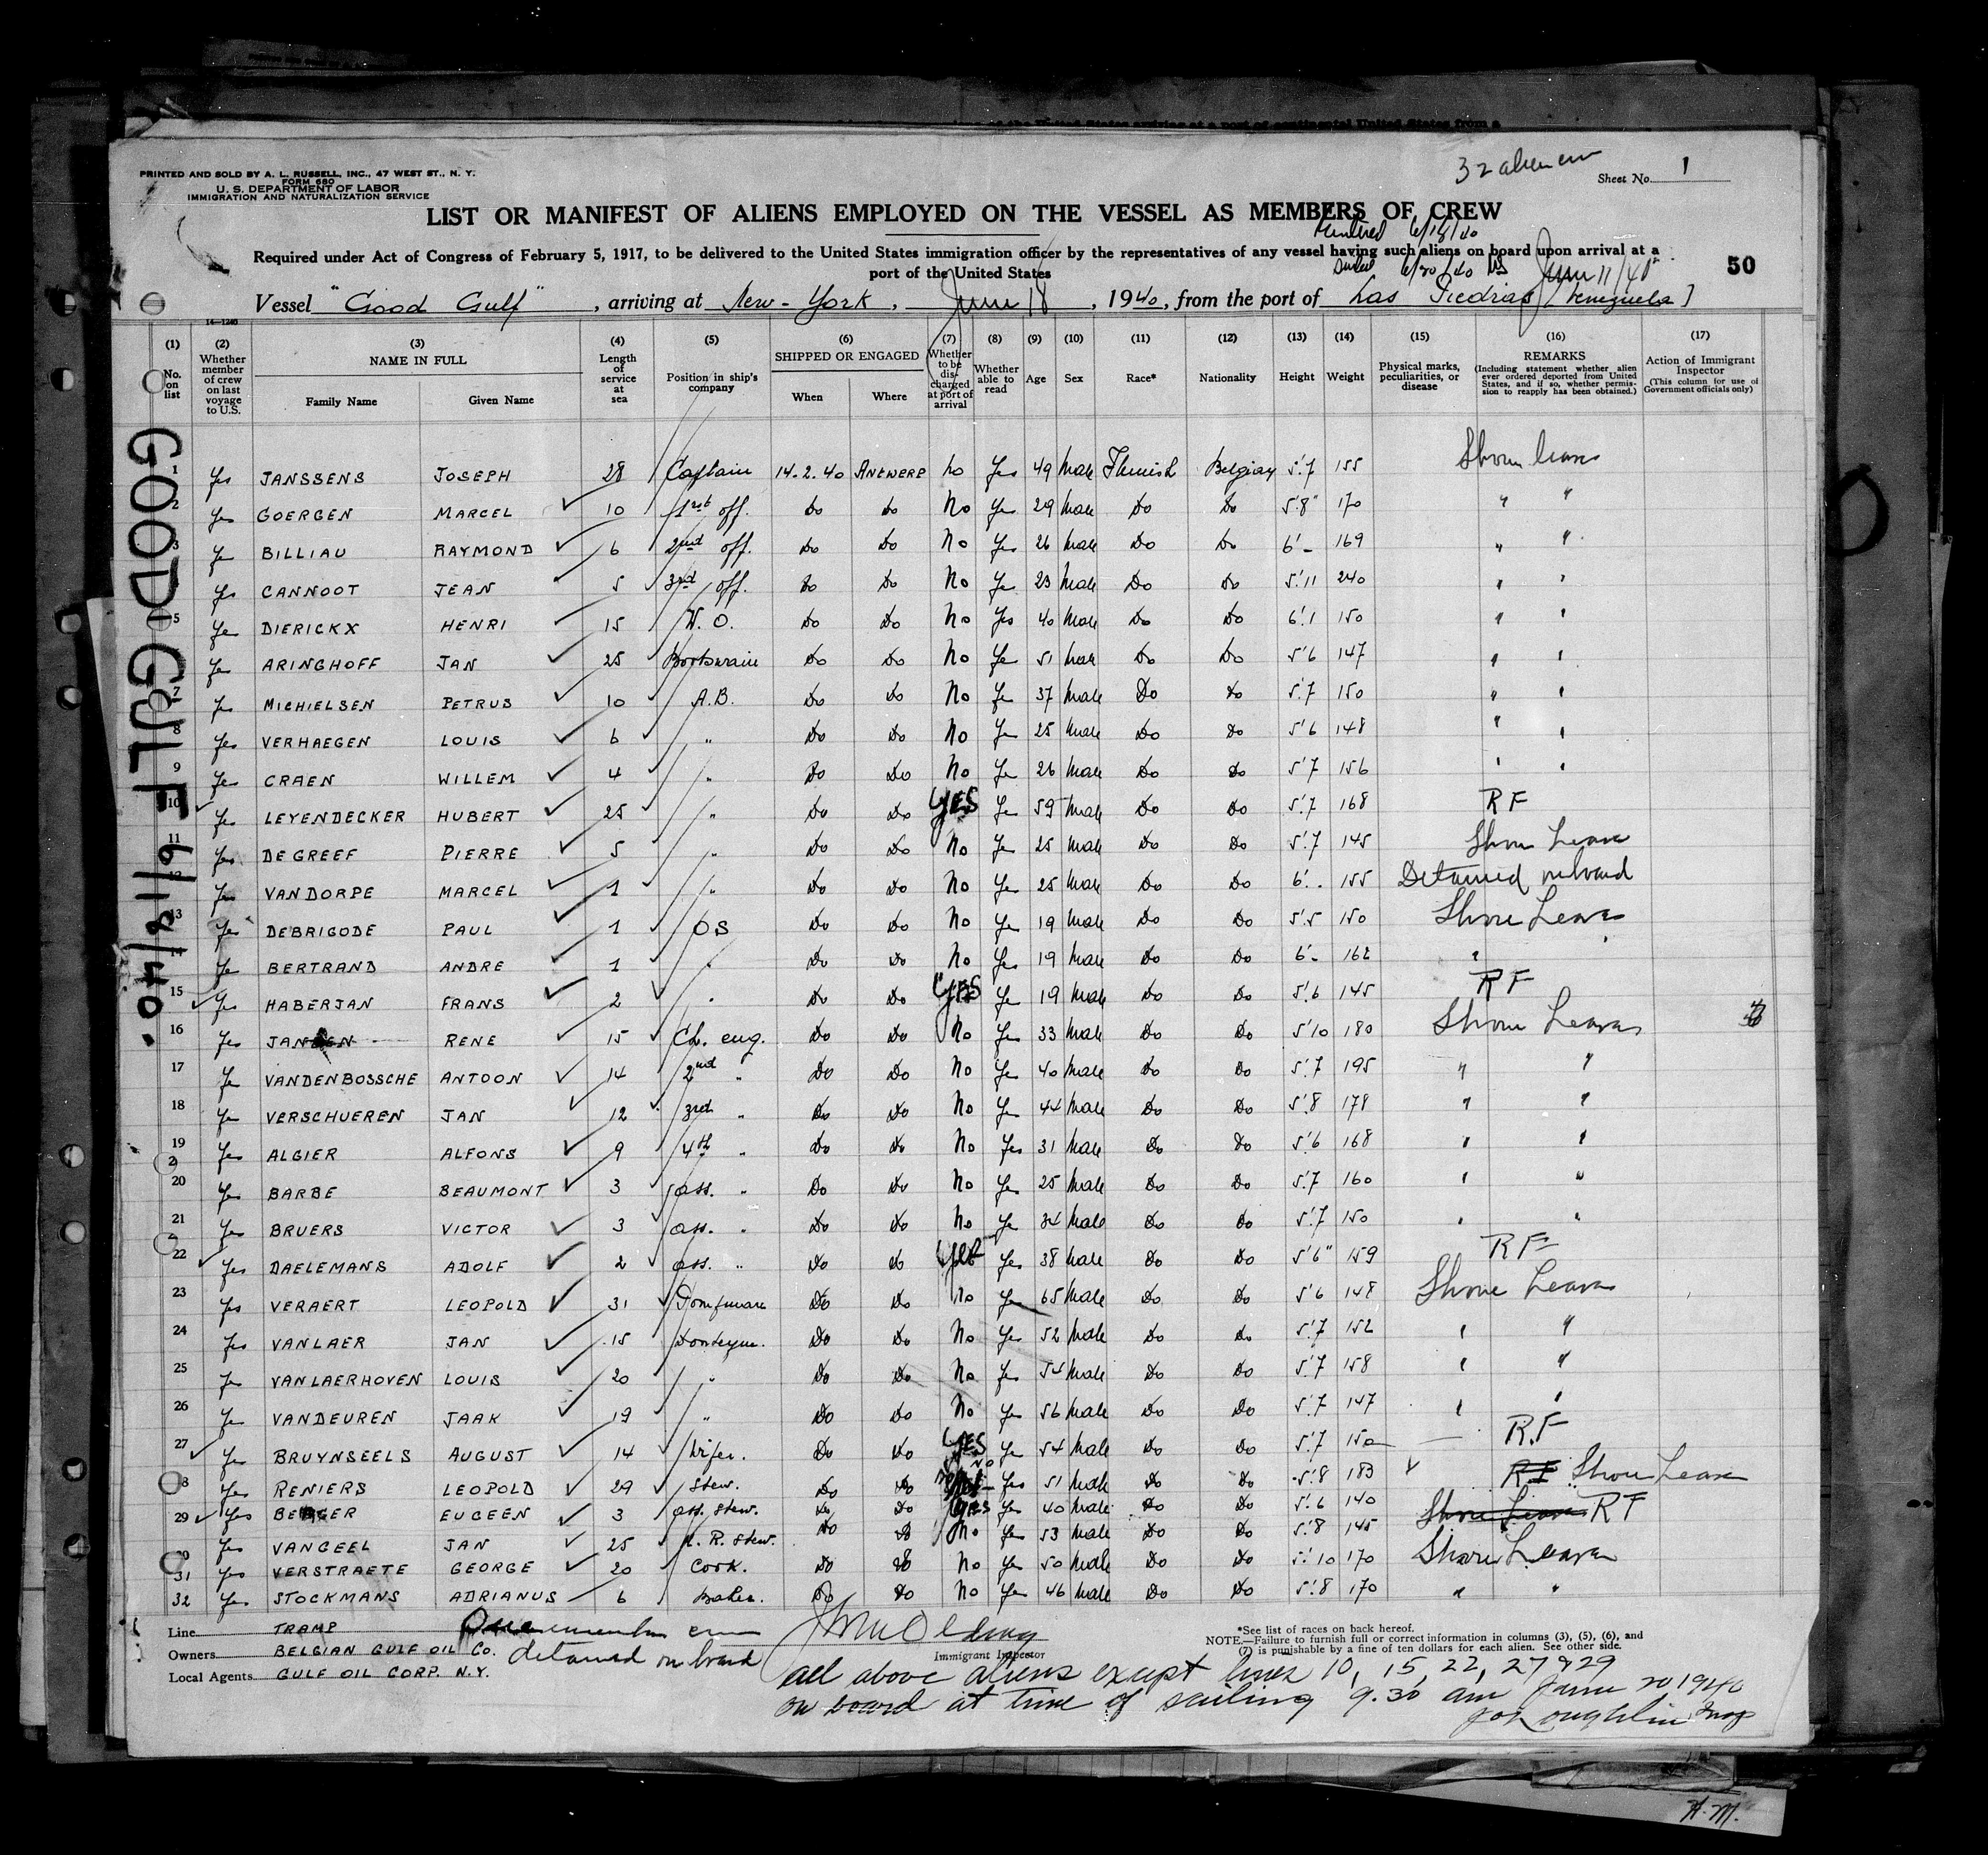 32 alien crew
Sheet No. 1
PRINTED AND SOLD BY A. L. RUSSELL, INC., 47 WEST ST., N. Y.
FORM 680
U. S. DEPARTMENT OF LABOR
IMMIGRATION AND NATURALIZATION SERVICE
LIST OR MANIFEST OF ALIENS EMPLOYED ON THE VESSEL AS MEMBERS OF CREW
6/18/40
Required under Act of Congress of February 5, 1917, to be delivered to the United States immigration officer by the representatives of any vessel having such aliens on board upon arrival at a
port of the United States
6/20/40 June 11/40
50
Vessel "Good Gulf", arriving at New-York, June 18, 1940, from the port of Las Piedras [Venezuela]
14-1240
(1) (2) (3) (4) (5) (6) (7) (8) (9) (10) (11) (12) (13) (14) (15) (16) (17)
No. on list
Whether member of crew on last voyage to U.S.
NAME IN FULL
Family Name Given Name
Length of service at sea
Position in ship's company
SHIPPED OR ENGAGED
When Where
Whether to be discharged at port of arrival
Whether able to read
Age
Sex
Race*
Nationality
Height
Weight
Physical marks, peculiarities, or disease
REMARKS
(Including statement whether alien ever ordered deported from United States, and if so, whether permission to reapply has been obtained.)
Action of Immigrant Inspector
(This column for use of Government officials only)
GOOD GULF 6/18/40.
1 Yes JANSSENS JOSEPH 28 Captain 14-2-40 ANTWERP No Yes 49 Male Flemish Belgian 5'7 155 Shore leave
2 Yes GOERGEN MARCEL 10 1st off. Do Do No Yes 29 Male Do Do 5'8" 170 " "
3 Yes BILLIAU RAYMOND 6 2nd off. Do Do No Yes 26 Male Do Do 6'- 169 " "
Yes CANNOOT JEAN 5 3rd off. Do Do No Yes 23 Male Do Do 5'11 240 " "
5 Yes DIERICKX HENRI 15 W. O. Do Do No Yes 40 Male Do Do 6'1 150 " "
Yes ARINGHOFF JAN 25 Bootswain Do Do No Yes 51 Male Do Do 5'6 147 " "
7 Yes MICHIELSEN PETRUS 10 A.B. Do Do No Yes 37 Male Do Do 5'7 150 " "
8 Yes VERHAEGEN LOUIS 6 " Do Do No Yes 25 Male Do Do 5'6 148 " "
9 Yes CRAEN WILLEM 4 " Do Do No Yes 26 Male Do Do 5'7 156 " "
10 Yes LEYENDECKER HUBERT 25 " Do Do YES Yes 59 Male Do Do 5'7 168 RF
11 Yes DE GREEF PIERRE 5 " Do Do No Yes 25 Male Do Do 5'7 145 Shore Leave
12 Yes VANDORPE MARCEL 1 " Do Do No Yes 25 Male Do Do 6'. 155 Detained on board
13 Yes DEBRIGODE PAUL 1 OS Do Do No Yes 19 Male Do Do 5'5 150 Shore Leave
14 Yes BERTRAND ANDRE 1 " Do Do No Yes 19 Male Do Do 6'- 162 "
15 Yes HABERJAN FRANS 2 " Do Do YES Yes 19 Male Do Do 5'6 145 RF
16 Yes RENE 15 Ch. eng. Do Do No Yes 33 Male Do Do 5'10 180 Shore Leave
17 Yes VANDENBOSSCHE ANTOON 14 2nd " Do Do No Yes 40 Male Do Do 5'7 195 " "
18 Yes VERSCHUEREN JAN 12 3rd " Do Do No Yes 44 Male Do Do 5'8 179 " "
19 Yes ALGIER ALFONS 9 4th " Do Do No Yes 31 Male Do Do 5'6 168 " "
20 Yes BARBE BEAUMONT 3 ass. " Do Do No Yes 25 Male Do Do 5'7 160 " "
21 Yes BRUERS VICTOR 3 ass. " Do Do No Yes 34 Male Do Do 5'7 150 " "
22 Yes DAELEMANS ADOLF 2 ass. " Do Do Yes Yes 38 Male Do Do 5'6" 159 RF
23 Yes VERAERT LEOPOLD 31 Do Do No Yes 65 Male Do Do 5'6 148 Shore Leave
24 Yes VANLAER JAN 15 Do Do No Yes 52 Male Do Do 5'7 152 " "
25 Yes VANLAERHOVEN LOUIS 20 " Do Do No Yes 54 Male Do Do 5'7 158 " "
26 Yes VANDEUREN JAAK 19 " Do Do No Yes 56 Male Do Do 5'7 147 " "
27 Yes BRUYNSEELS AUGUST 14 Wiper. Do Do YES Yes 54 Male Do Do 5'7 150 R.F
28 Yes RENIERS LEOPOLD 29 Stew. Do Do No Yes 51 Male Do Do 5'8 183 RF Shore Leave
29 Yes EUGEEN 3 ass. Stew. Do Do Yes Yes 40 Male Do Do 5'6 140 Shore Leave RF
30 Yes VANGEEL JAN 25 M. R. Stew. Do Do No Yes 53 Male Do Do 5'8 145 Shore Leave
31 Yes VERSTRAETE GEORGE 20 Cook. Do Do No Yes 50 Male Do Do 5'10 170
32 Yes STOCKMANS ADRIANUS 6 Baker. Do Do No Yes 46 Male Do Do 5'8 170 " "
Line TRAMP
Owners BELGIAN GULF OIL Co.
Local Agents GULF OIL CORP. N.Y.
One member crew
detained on board
Immigrant Inspector
*See list of races on back hereof.
NOTE.—Failure to furnish full or correct information in columns (3), (5), (6), and
(7) is punishable by a fine of ten dollars for each alien. See other side.
all above aliens except lines 10, 15, 22, 27 & 29
on board at time of sailing 9.30 am June 20 1940
Loughlin Insp
H. M.